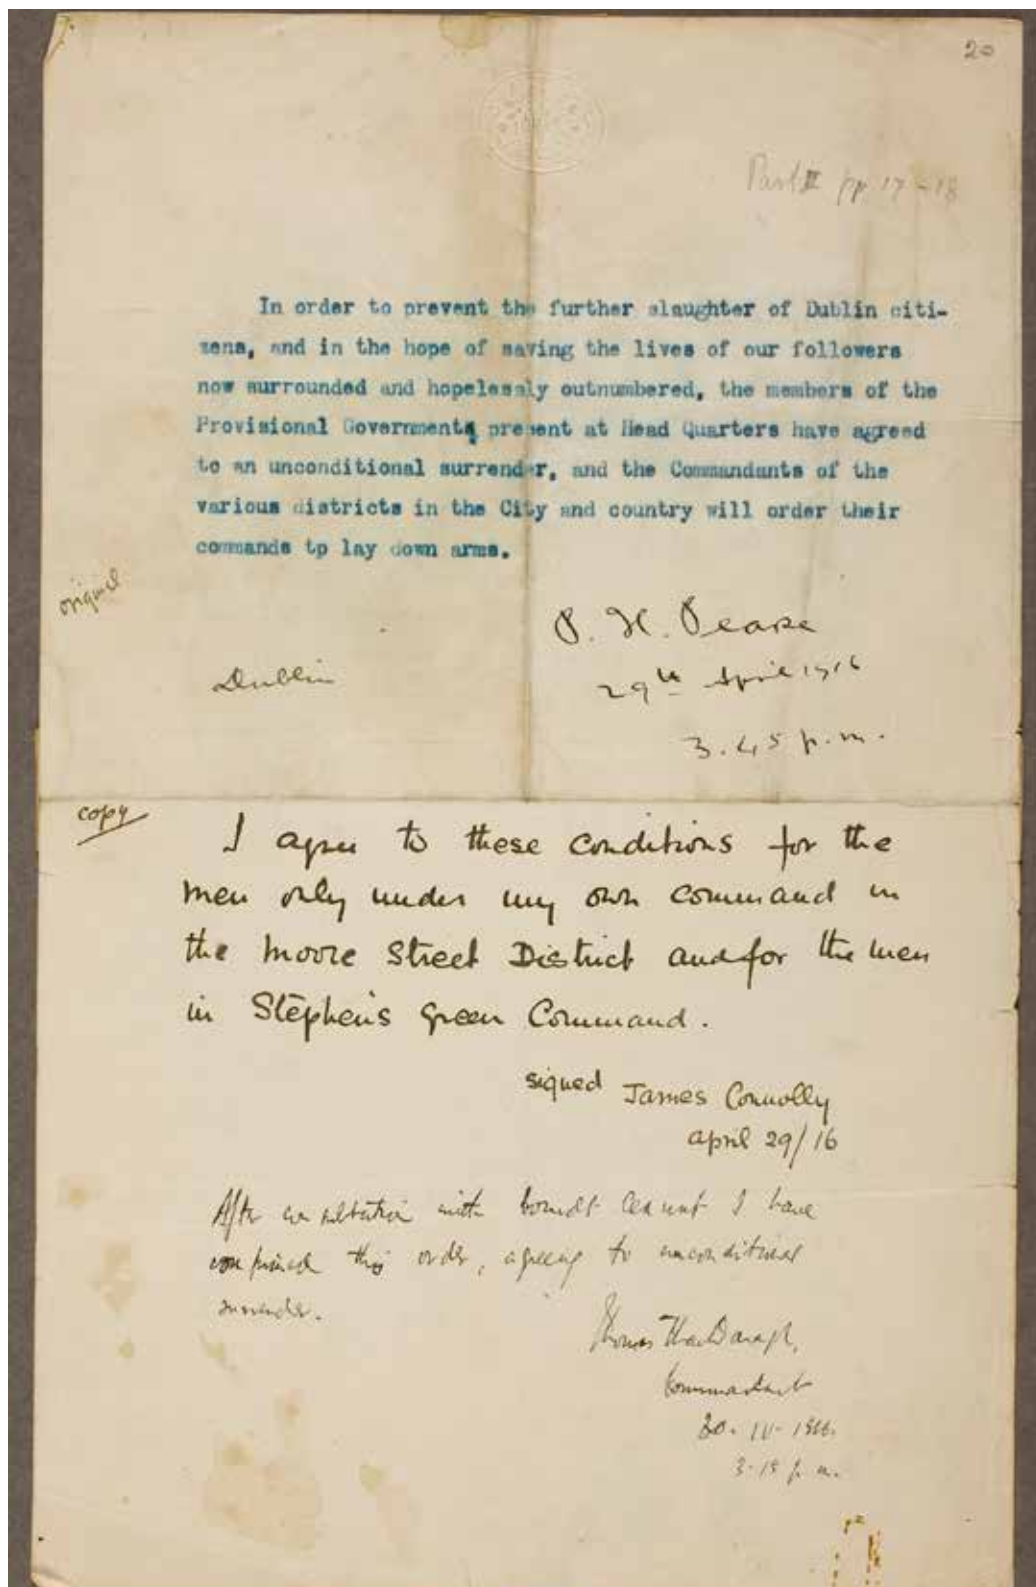 20
Part II pp. 17-18
In order to prevent the further slaughter of Dublin citi-
zens, and in the hope of saving the lives of our followers
now surrounded and hopelessly outnumbered, the members of the
Provisional Government present at Head Quarters have agreed
to an unconditional surrender, and the Commandants of the
various districts in the City and country will order their
commands tp lay down arms.
original
P. H. Pearse
Dublin
29th April 1916
3.45 p.m.
copy
I agree to these conditions for the
men only under my own command in
the Moore Street District and for the men
in Stephen's Green Command.
signed James Connolly
April 29/16
After consultation with Comdt Ceannt I have
confirmed this order, agreeing to unconditional
surrender.
Thomas MacDonagh,
Commandant
30. IV. 1916.
3.15 p.m.